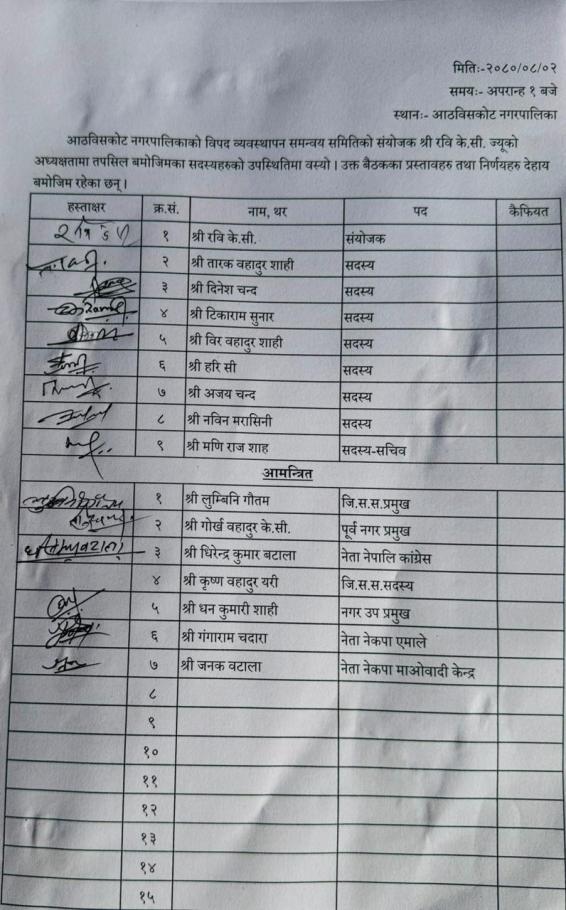 मितिः-२०८०/०८/०२
समयः- अपरान्ह १ बजे
स्थानः- आठविसकोट नगरपालिका
आठविसकोट नगरपालिकाको विपद व्यवस्थापन समन्वय समितिको संयोजक श्री रवि के.सी. ज्यूको
अध्यक्षतामा तपसिल बमोजिमका सदस्यहरुको उपस्थितिमा वस्यो । उक्त बैठकका प्रस्तावहरु तथा निर्णयहरु देहाय
बमोजिम रहेका छन् ।
हस्ताक्षर क्र.सं. नाम, थर पद कैफियत
१ श्री रवि के.सी. संयोजक
२ श्री तारक वहादुर शाही सदस्य
३ श्री दिनेश चन्द सदस्य
४ श्री टिकाराम सुनार सदस्य
५ श्री विर वहादुर शाही सदस्य
६ श्री हरि सी सदस्य
७ श्री अजय चन्द सदस्य
८ श्री नविन मरासिनी सदस्य
९ श्री मणि राज शाह सदस्य-सचिव
आमन्त्रित
१ श्री लुम्बिनि गौतम जि.स.स.प्रमुख
२ श्री गोर्ख वहादुर के.सी. पूर्व नगर प्रमुख
३ श्री धिरेन्द्र कुमार बटाला नेता नेपालि कांग्रेस
४ श्री कृष्ण वहादुर यरी जि.स.स.सदस्य
५ श्री धन कुमारी शाही नगर उप प्रमुख
६ श्री गंगाराम चदारा नेता नेकपा एमाले
७ श्री जनक वटाला नेता नेकपा माओवादी केन्द्र
८
९
१०
११
१२
१३
१४
१५